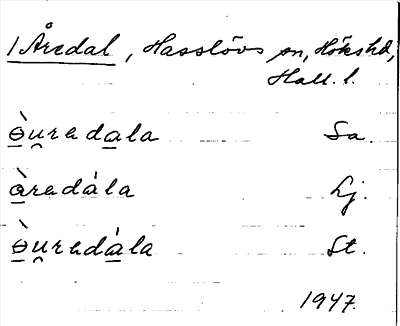 1 Åredal, Hasslövs sn, Höks hd,
Hall. l.
ɵ̱̀u̯reda̱la Sa.
à̱redàla Lj.
ɵ̱̀u̯redà̱la St.
1947.